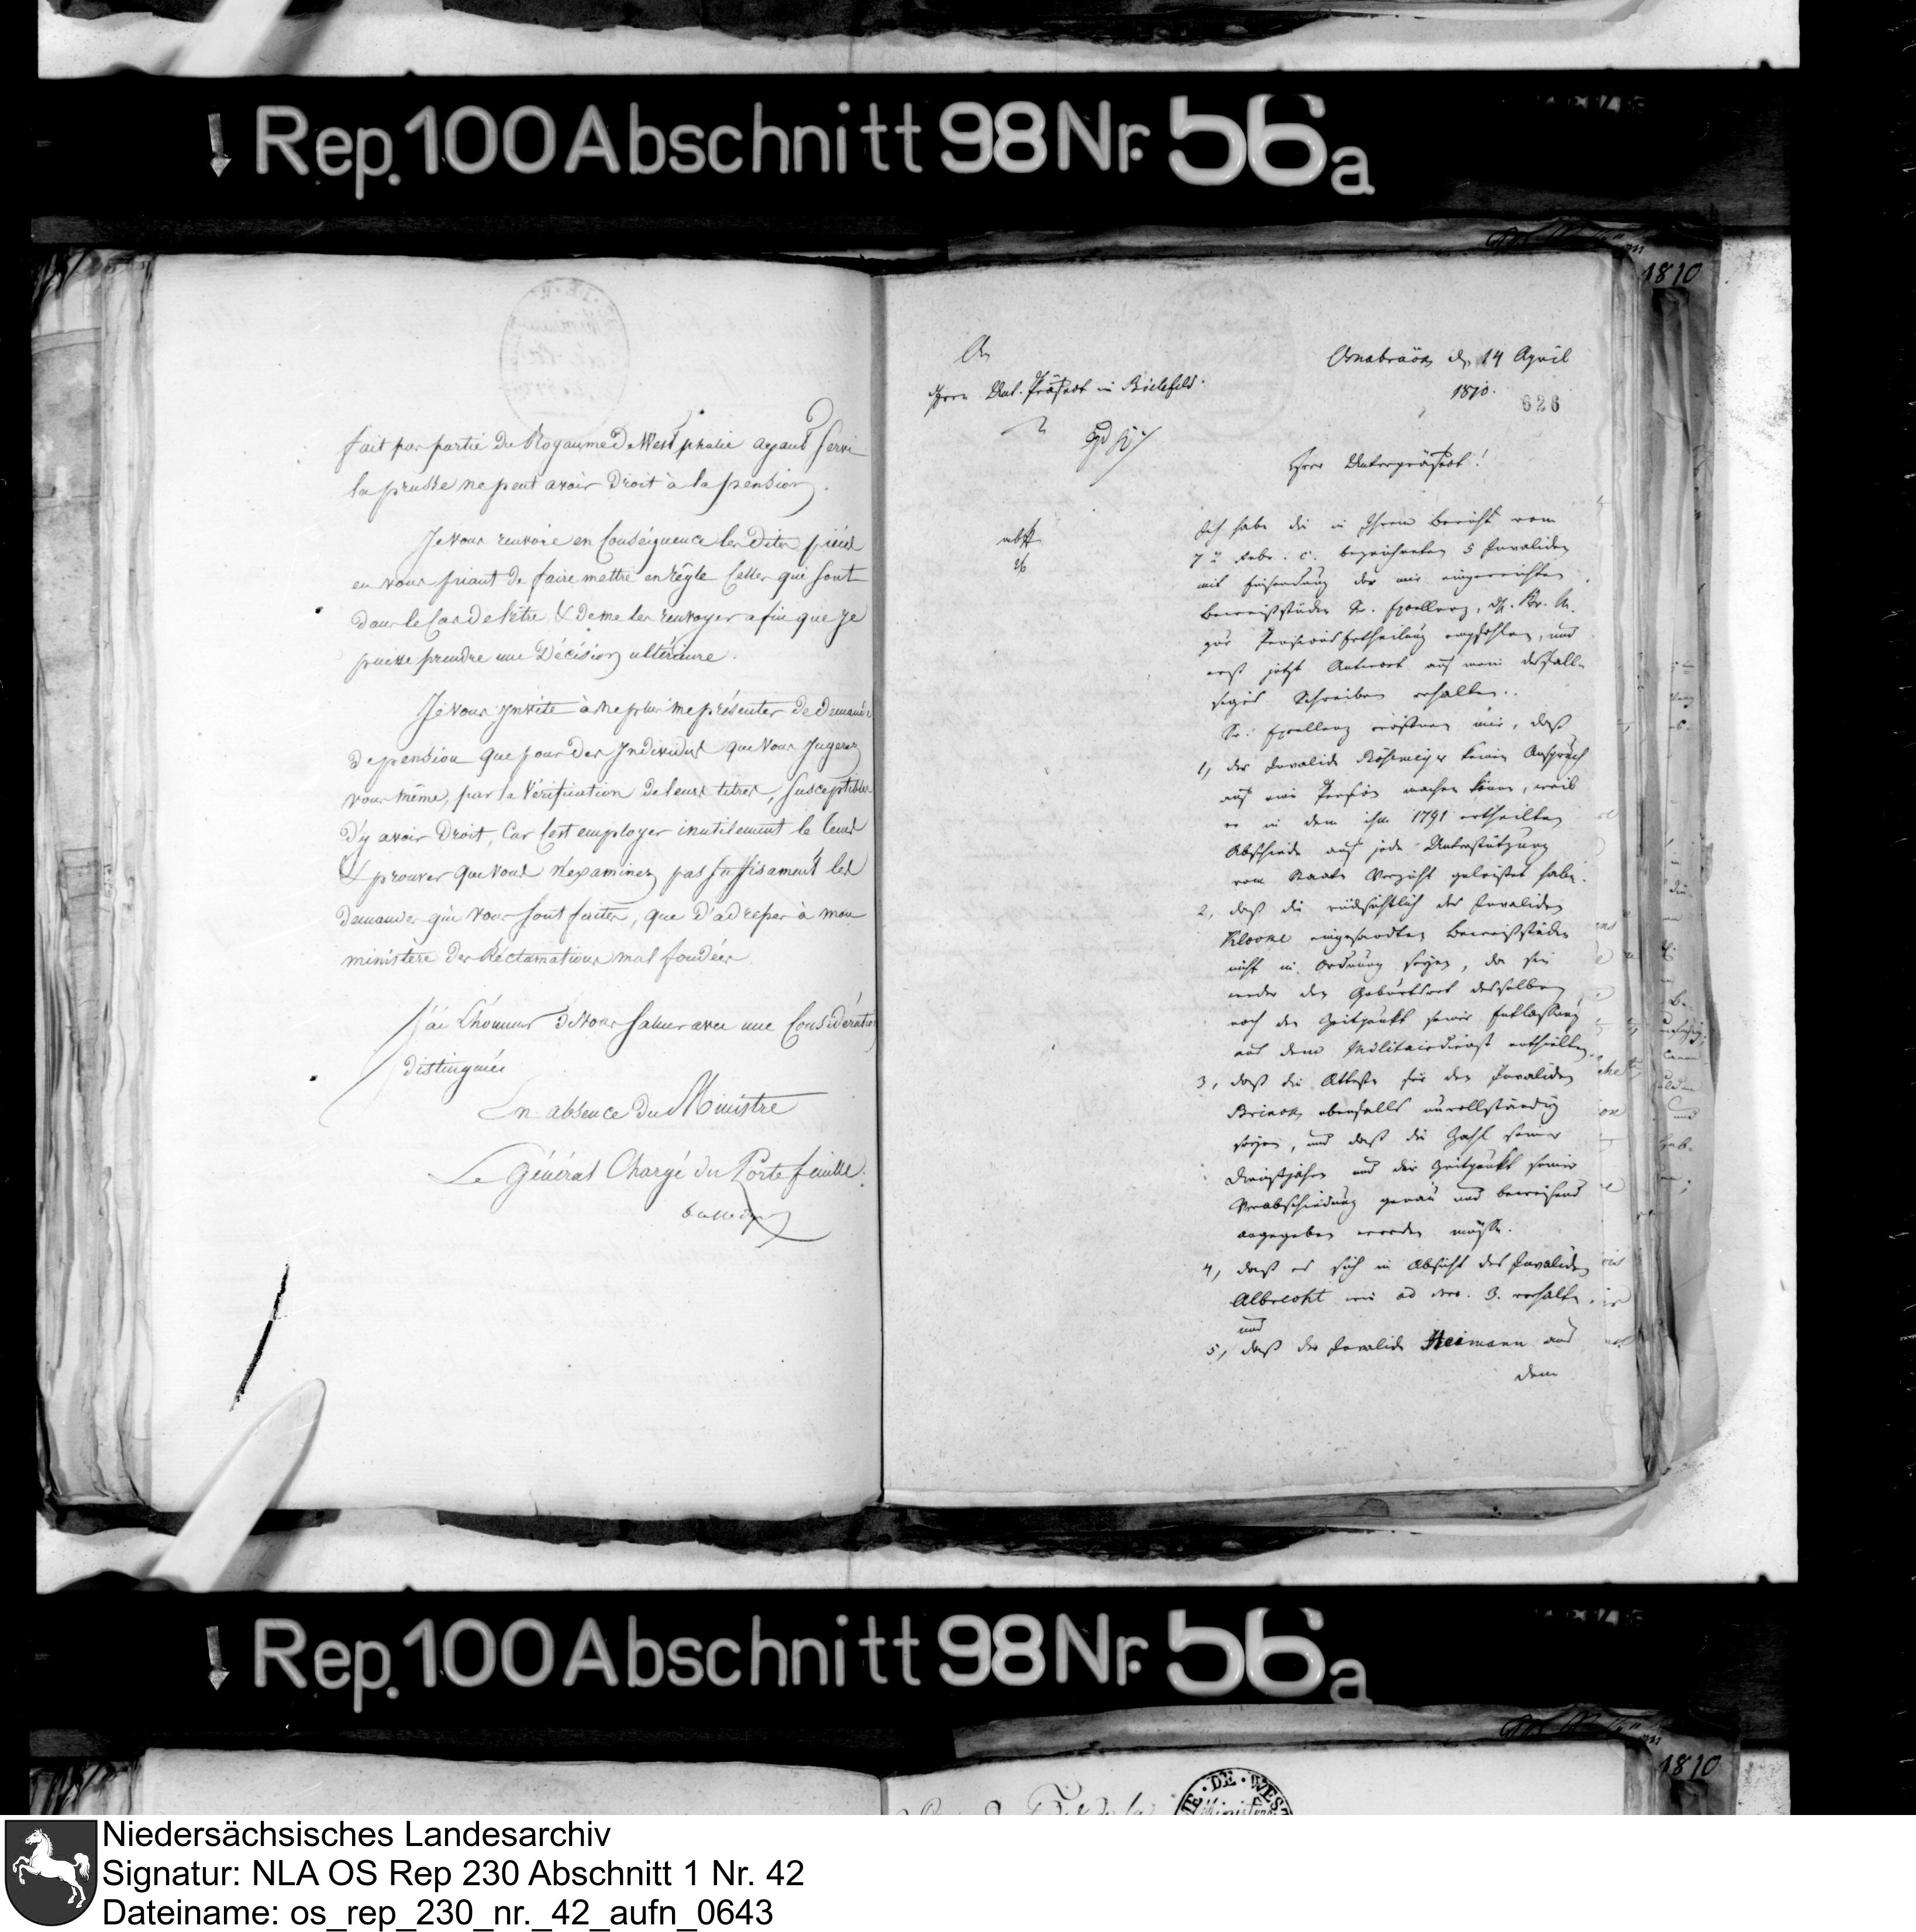 Rep. 100 Abschnitt 98 Nr. 56a
1810
fait pas partie du Royaume de Westphalie ayant servi
la prusse ne peut avoir droit à la pension.
Je vous renvoie en Conséquence les dites pièces
en vous priant de faire mettre en règle Celles qui sont
dans le Cas de l'être & de me les renvoyer afin que je
puisse prendre une Décision ultérieure.
Je vous invite à ne plus me présenter de demande
de pension que pour des Individus que vous jugerez
vous même, par la Vérification de leurs titres, susceptibles
d'y avoir droit, Car c'est employer inutilement le tems
& prouver que vous n'examinez pas suffisament les
demandes qui vous sont faites, que d'adresser à mon
ministère des Réclamations mal fondées.
J'ai l'honneur de vous saluer avec une Considération
distinguée
En absence du Ministre
Le Général Chargé du Porte feuille.
An
Herrn Unt. Präfect in Bielefeld.
Osnabrück d. 14 April
1810.
626
Herr Unterpräfect!
Ich habe die in Ihrem Bericht vom
7n Febr. c. bezeichneten 5 Invaliden
mit Einsendung der mir eingereichten
Beweisstücke Sr. Excellenz, d. Kr. M.
zur Pensions Ertheilung empfohlen, und
erst jetzt Antwort auf mein desfall-
siges Schreiben erhalten.
Sr. Excellenz eröffnen mir, daß
1, der Invalide Kösemeyer keinen Anspruch
auf eine Pension machen könne, weil
er in dem ihm 1791 ertheilten
Abschiede auf jede Unterstützung
vom Staate Verzicht geleistet habe.
2, daß die rücksichtlich des Invaliden
Kloone eingesandten Beweisstücke
nicht in Ordnung seyen, da sie
weder den Geburtsort desselben
noch den Zeitpunkt seiner Entlassung
aus dem Militairdienst enthielten.
3, daß die Atteste für den Invaliden
Brinck ebenfalls unvollständig
seyen, und daß die Zahl seiner
Dienstjahre und der Zeitpunkt seiner
Verabschiedung genau und beweisend
angegeben werden müsse.
4, daß es sich in Absicht des Invaliden
Albrecht wie ad Nro. 3. verhalte,
und
5, daß der Invalide Heimann aus
dem
Rep. 100 Abschnitt 98 Nr. 56a
1810
Niedersächsisches Landesarchiv
Signatur: NLA OS Rep 230 Abschnitt 1 Nr. 42
Dateiname: os_rep_230_nr._42_aufn_0643